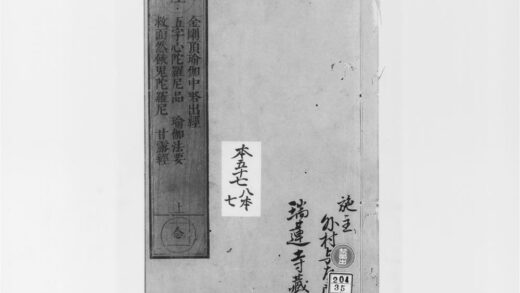 施主
外村与左
瑞蓮寺藏
204
35
本五十七八本
七
金剛頂瑜伽中畧出經
五字心陀羅尼品 瑜伽法要
救面然餓鬼陀羅尼 甘露經
上